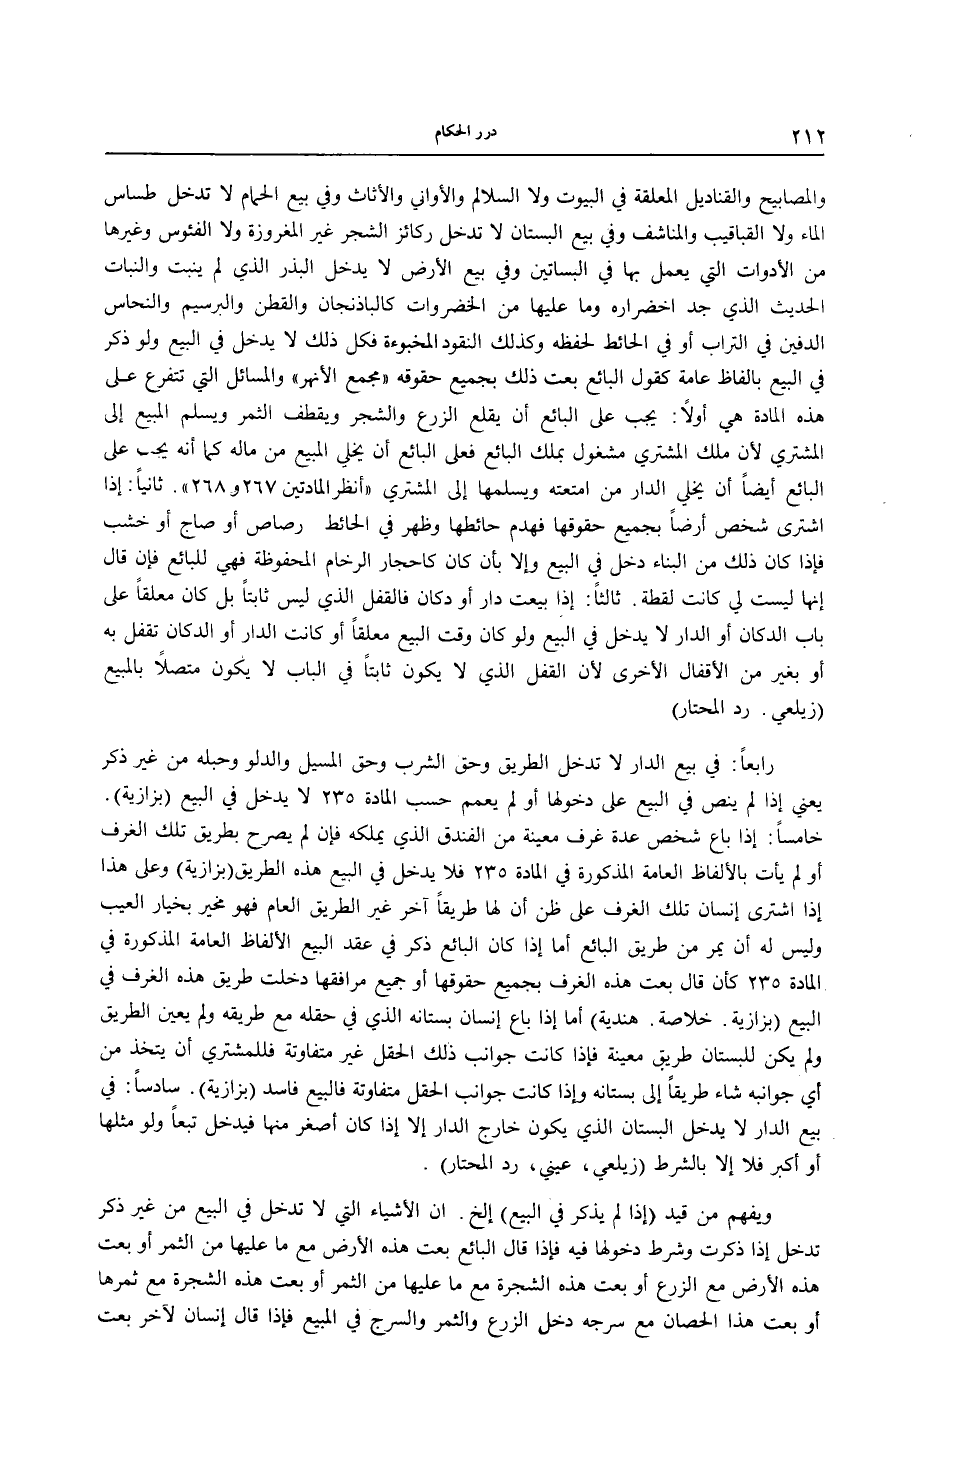 ٢١٢
درر الحكام
والمصابيح والقناديل المعلقة في البيوت ولا السلالم والأواني والأثاث وفي بيع الحمام لا تدخل طساس
الماء ولا القباقيب والمناشف وفي بيع البستان لا تدخل ركائز الشجر غير المغروزة ولا الفئوس وغيرها
من الأدوات التي يعمل بها في البساتين وفي بيع الأرض لا يدخل البذر الذي لم ينبت والنبات
الحديث الذي جد اخضراره وما عليها من الخضروات كالباذنجان والقطن والبرسيم والنحاس
الدفين في التراب أو في الحائط لحفظه وكذلك النقود المخبوءة فكل ذلك لا يدخل في البيع ولو ذكر
في البيع بالفاظ عامة كقول البائع بعت ذلك بجميع حقوقه «مجمع الأنهر» والمسائل التي تتفرع على
هذه المادة هي أولاً: يجب على البائع أن يقلع الزرع والشجر ويقطف الثمر ويسلم المبيع إلى
المشتري لأن ملك المشتري مشغول بملك البائع فعلى البائع أن يخلي المبيع من ماله كما أنه يجب على
البائع أيضاً أن يخلي الدار من امتعته ويسلمها إلى المشتري «أنظر المادتين ٢٦٧ و ٢٦٨». ثانياً: إذا
اشترى شخص أرضاً بجميع حقوقها فهدم حائطها وظهر في الحائط رصاص أو صاج أو خشب
فإذا كان ذلك من البناء دخل في البيع وإلا بأن كان كاحجار الرخام المحفوظة فهي للبائع فإن قال
إنها ليست لي كانت لقطة. ثالثاً: إذا بيعت دار أو دكان فالقفل الذي ليس ثابتاً بل كان معلقاً على
باب الدكان أو الدار لا يدخل في البيع ولو كان وقت البيع معلقاً أو كانت الدار أو الدكان تقفل به
أو بغير من الأقفال الأخرى لأن القفل الذي لا يكون ثابتاً في الباب لا يكون متصلاً بالمبيع
(زيلعي. رد المحتار)
رابعاً: في بيع الدار لا تدخل الطريق وحق الشرب وحق المسيل والدلو وحبله من غير ذكر
يعني إذا لم ينص في البيع على دخولها أو لم يعمم حسب المادة ٢٣٥ لا يدخل في البيع (بزازية).
خامساً: إذا باع شخص عدة غرف معينة من الفندق الذي يملكه فإن لم يصرح بطريق تلك الغرف
أو لم يأت بالألفاظ العامة المذكورة في المادة ٢٣٥ فلا يدخل في البيع هذه الطريق(بزازية) وعلى هذا
إذا اشترى إنسان تلك الغرف على ظن أن لها طريقاً آخر غير الطريق العام فهو مخير بخيار العيب
وليس له أن يمر من طريق البائع أما إذا كان البائع ذكر في عقد البيع الألفاظ العامة المذكورة في
المادة ٢٣٥ كأن قال بعت هذه الغرف بجميع حقوقها أو جميع مرافقها دخلت طريق هذه الغرف في
البيع (بزازية. خلاصة. هندية) أما إذا باع إنسان بستانه الذي في حقله مع طريقه ولم يعين الطريق
ولم يكن للبستان طريق معينة فإذا كانت جوانب ذلك الحقل غير متفاوتة فللمشتري أن يتخذ من
أي جوانبه شاء طريقاً إلى بستانه وإذا كانت جوانب الحقل متفاوتة فالبيع فاسد (بزازية). سادساً: في
بيع الدار لا يدخل البستان الذي يكون خارج الدار إلا إذا كان أصغر منها فيدخل تبعاً ولو مثلها
أو أكبر فلا إلا بالشرط (زيلعي، عيني، رد المحتار) .
ويفهم من قيد (إذا لم يذكر في البيع) إلخ. ان الأشياء التي لا تدخل في البيع من غير ذكر
تدخل إذا ذكرت وشرط دخولها فيه فإذا قال البائع بعت هذه الأرض مع ما عليها من الثمر أو بعت
هذه الأرض مع الزرع أو بعت هذه الشجرة مع ما عليها من الثمر أو بعت هذه الشجرة مع ثمرها
أو بعت هذا الحصان مع سرجه دخل الزرع والثمر والسرج في المبيع فإذا قال إنسان لآخر بعت